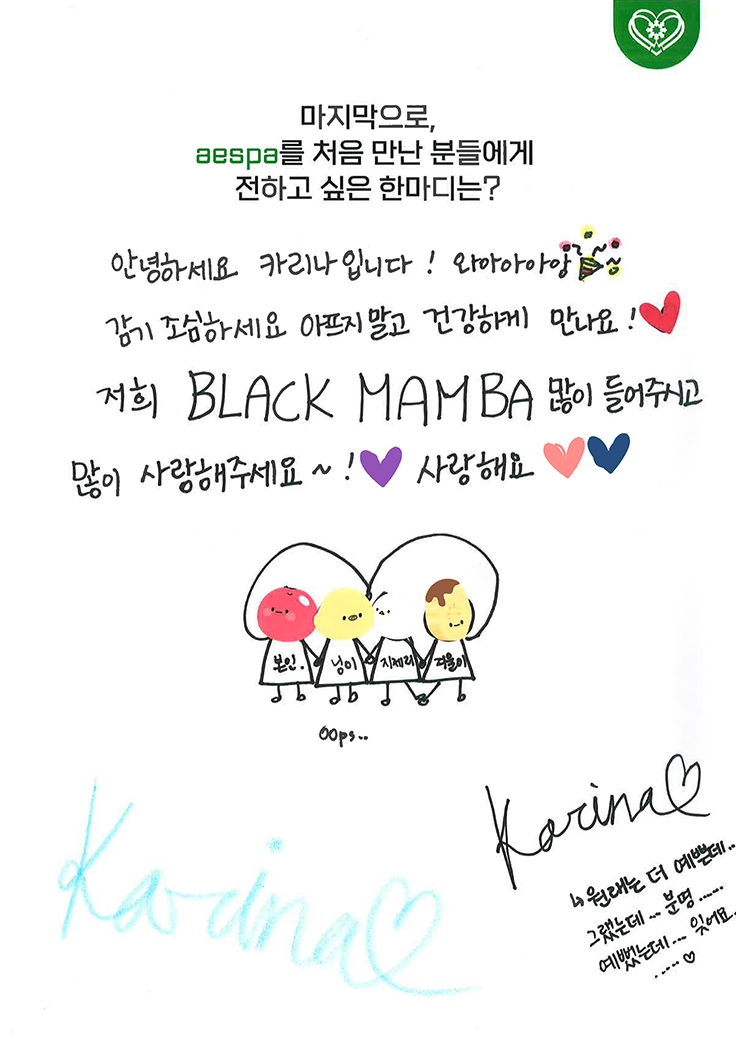 마지막으로,
aespa를 처음 만난 분들에게
전하고 싶은 한마디는?
안녕하세요 카리나입니다! 와아아아앙
감기조심하세요 아프지말고 건강하게 만나요!
저희 BLACK MAMBA 많이 들어주시고
많이 사랑해주세요~! 사랑해요
본인. 닝이 지제리 겨울이
oops..
Karina
Karina
↳ 원래는 더 예쁜데..
그랬는데... 분명......
예뻤는데... 잊어요.
.....